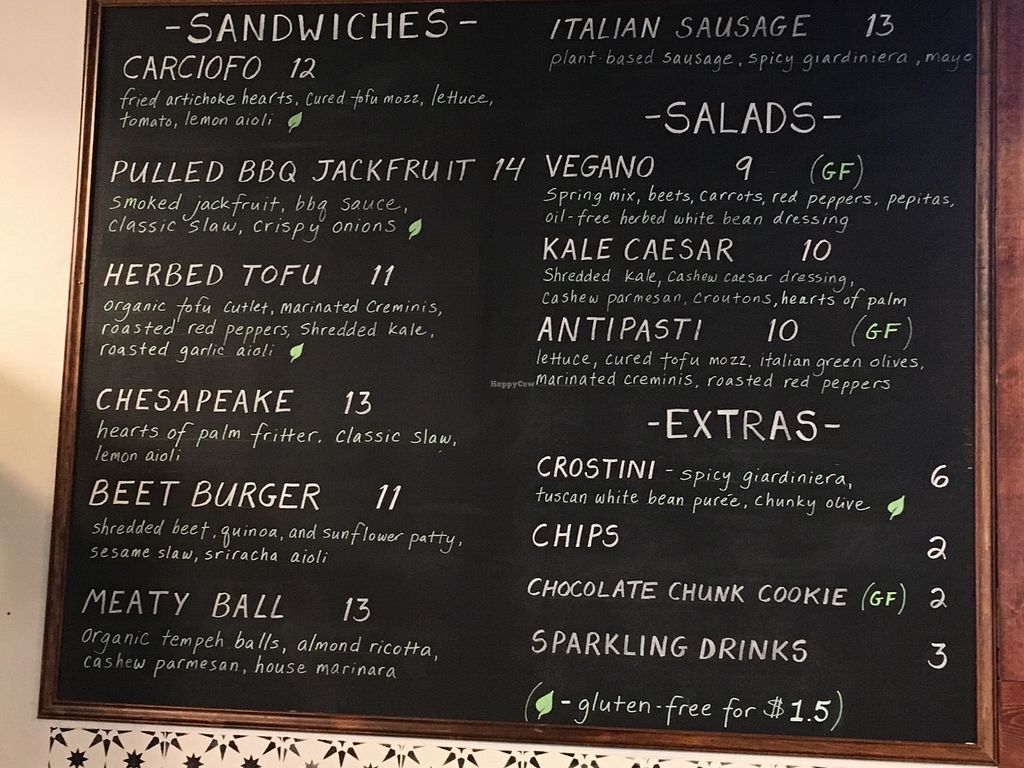 -SANDWICHES-
CARCIOFO 12
fried artichoke hearts, cured tofu mozz, lettuce,
tomato, lemon aioli
PULLED BBQ JACKFRUIT 14
smoked jackfruit, bbq sauce,
classic slaw, crispy onions
HERBED TOFU 11
organic tofu cutlet, marinated creminis,
roasted red peppers, shredded kale,
roasted garlic aioli
CHESAPEAKE 13
hearts of palm fritter, classic slaw,
lemon aioli
BEET BURGER 11
shredded beet, quinoa, and sunflower patty,
sesame slaw, sriracha aioli
MEATY BALL 13
organic tempeh balls, almond ricotta,
cashew parmesan, house marinara
ITALIAN SAUSAGE 13
plant-based sausage, spicy giardiniera, mayo
-SALADS-
VEGANO 9 (GF)
Spring mix, beets, carrots, red peppers, pepitas,
oil-free herbed white bean dressing
KALE CAESAR 10
Shredded kale, cashew caesar dressing,
cashew parmesan, croutons, hearts of palm
ANTIPASTI 10 (GF)
lettuce, cured tofu mozz, italian green olives,
marinated creminis, roasted red peppers
-EXTRAS-
CROSTINI - spicy giardiniera, 6
tuscan white bean purée, chunky olive
CHIPS 2
CHOCOLATE CHUNK COOKIE (GF) 2
SPARKLING DRINKS 3
( - gluten-free for $1.5)
HappyCow